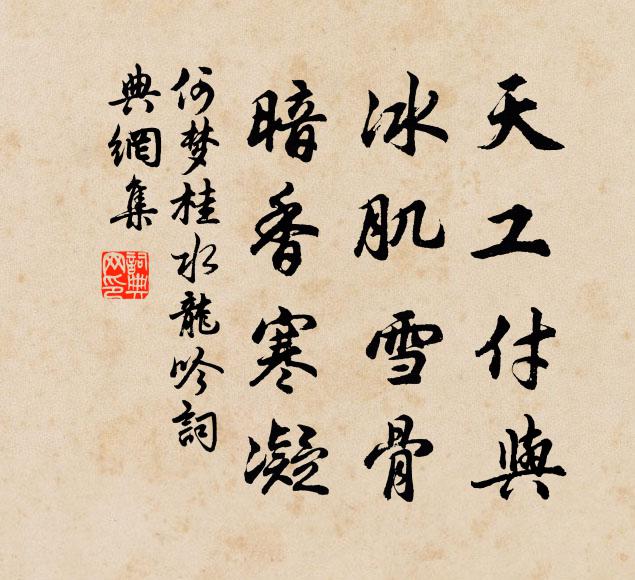 天工付與
冰肌雪骨
暗香寒凝
何梦桂水龍吟詞
典網集
詞典
网印